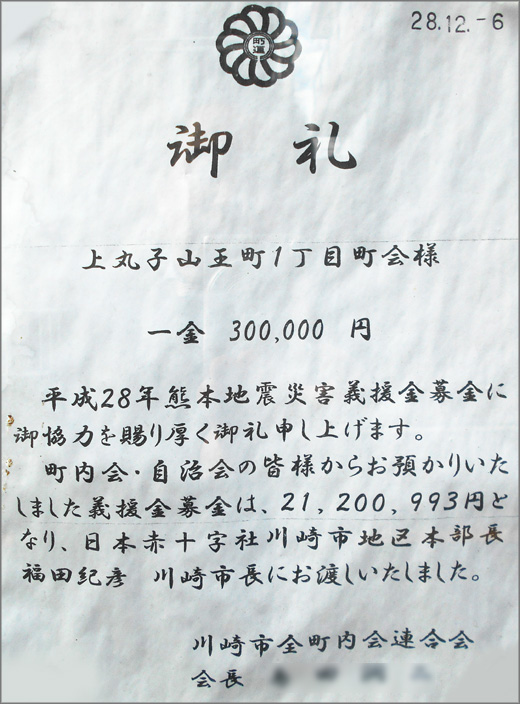 28.12.-6
町連
御礼
上丸子山王町1丁目町会様
一金 300,000 円
平成28年熊本地震災害義援金募金に
御協力を賜り厚く御礼申し上げます。
町内会・自治会の皆様からお預かりいた
しました義援金募金は、21,200,993円と
なり、日本赤十字社川崎市地区本部長
福田紀彦 川崎市長にお渡しいたしました。
川崎市全町内会連合会
会長